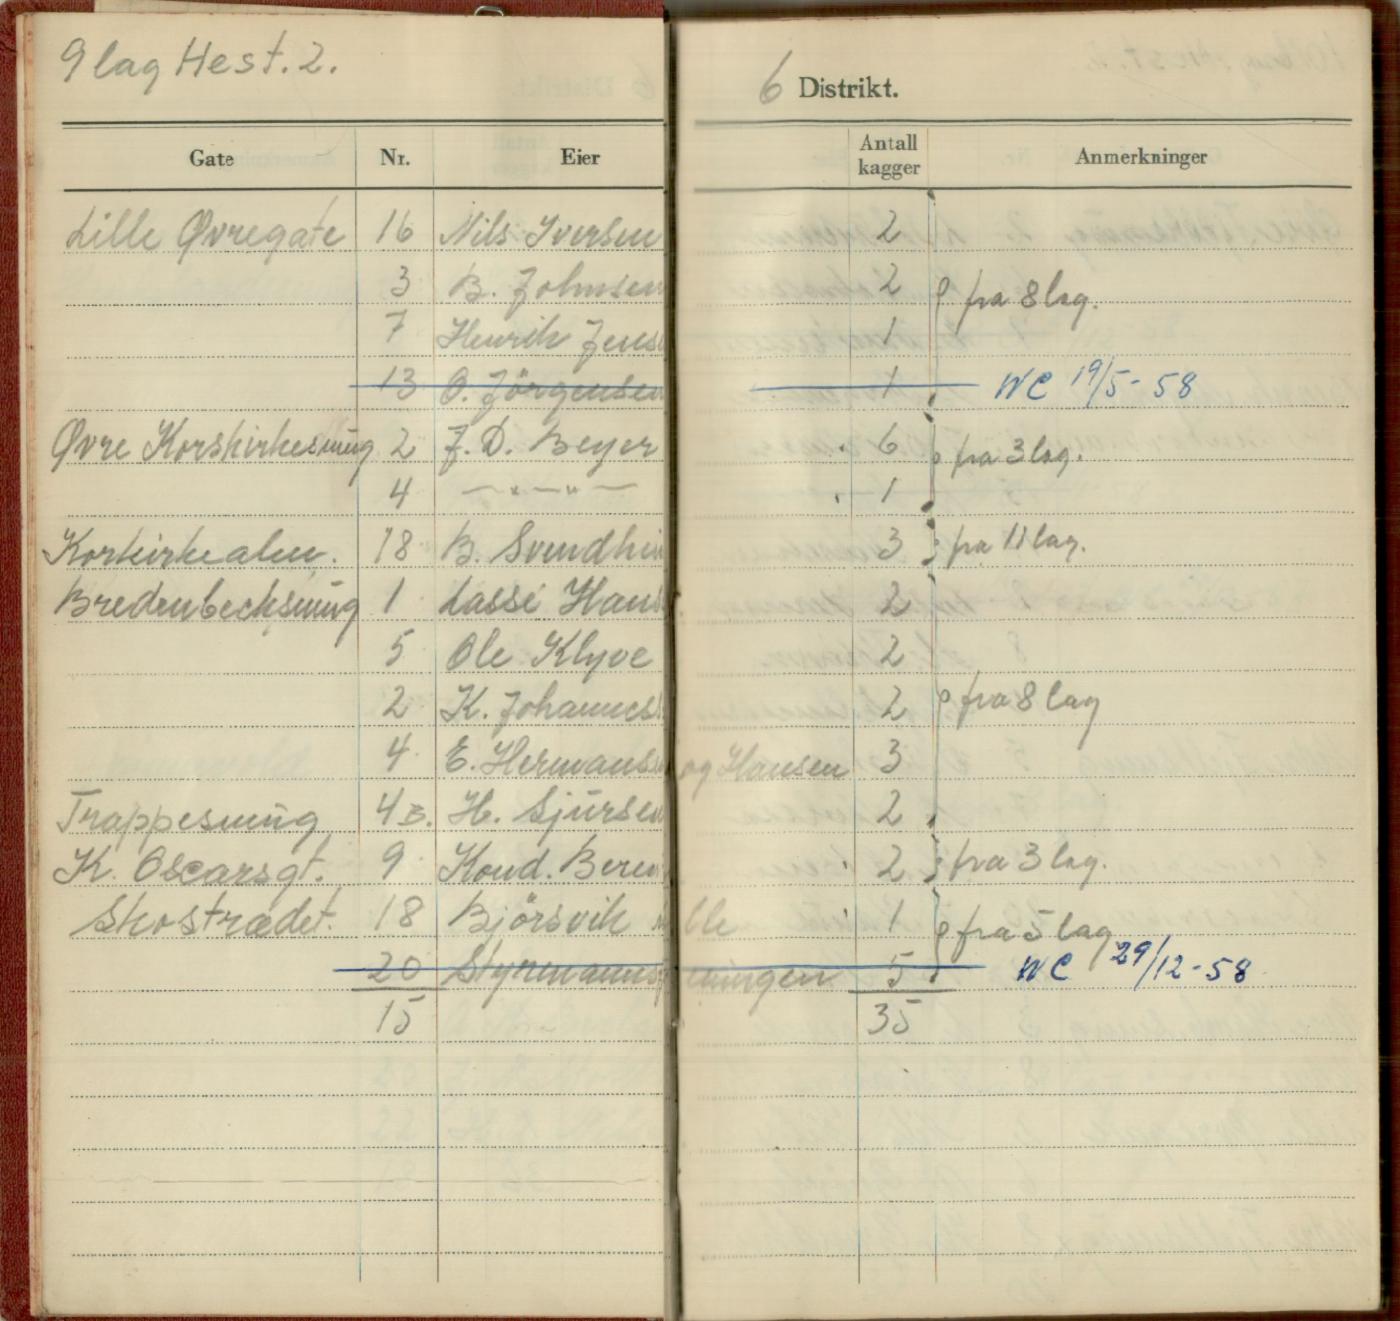 9 lag Hest. 2.
6 Distrikt.
Gate Nr. Eier Antall kagger Anmerkninger
Lille Øvregate 16 Nils Iversen 2
3 B. Johnsen 2 fra 8 lag.
7 Henrik Jens 1
13 O. Jörgensen 1 WC 19/5-58
Øvre Korskirkesmug 2 J. D. Beyer 6 fra 3 lag.
4 — " — " — 1
Korkirkealm. 18 B. Svendhei 3 fra 11 lag.
Bredenbecksmug 1 Lasse Hans 2
5 Ole Klyve 2
2 K. Johannes 2 fra 8 lag
4 E. Hermansen og Hansen 3
Trappesmug 4 B. H. Sjursen 2
K. Oscarsgt. 9 Kond. Beren 2 fra 3 lag.
Skostrædet. 18 Björsvik 1 fra 5 lag
20 Styrmannsf eningen 5 WC 29/12-58
15 35